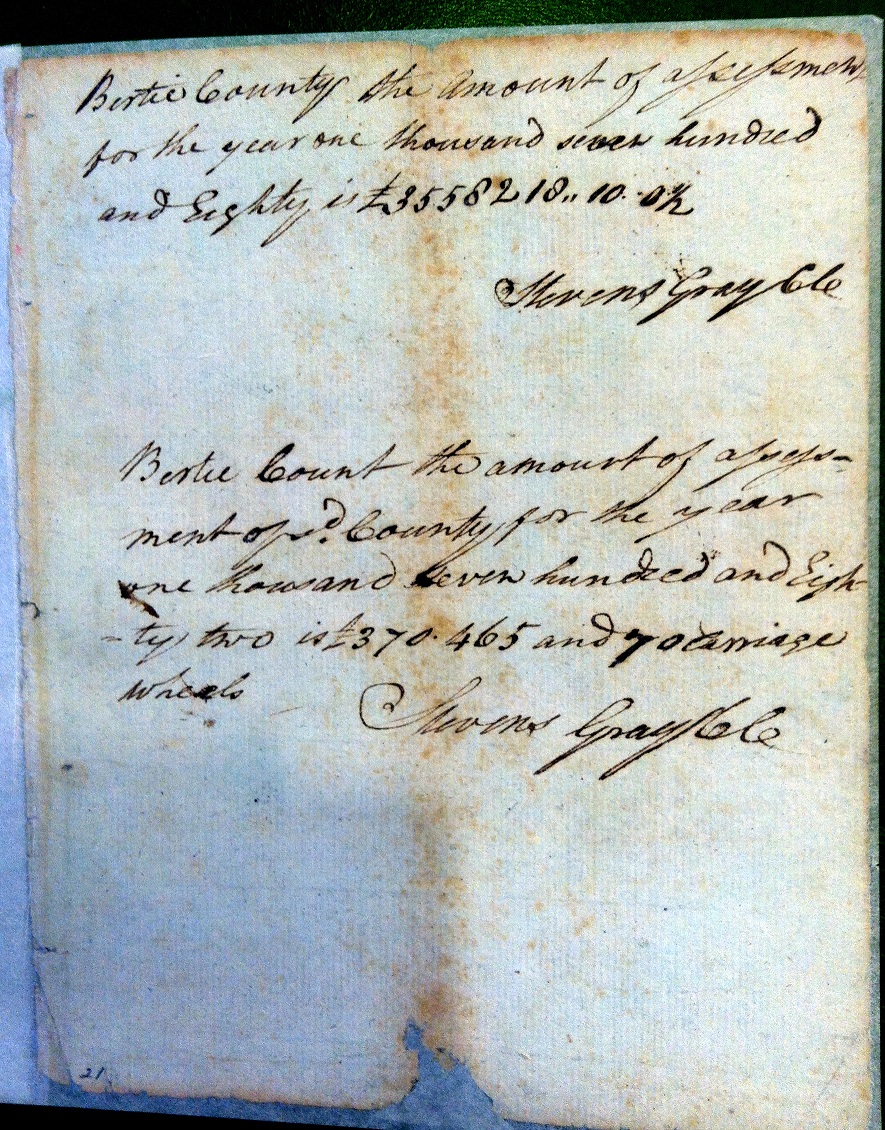 Bertie County the Amount of assessment
for the year one thousand seven hundred
and Eighty is £3558218,, 10.. 0½
Stevens Gray Clc
Bertie Count the amount of assess-
ment of sd. County for the year
one thousand seven hundred and Eigh-
-ty two is £370.465 and 70 carriage
wheels
Stevens Gray Clc
21